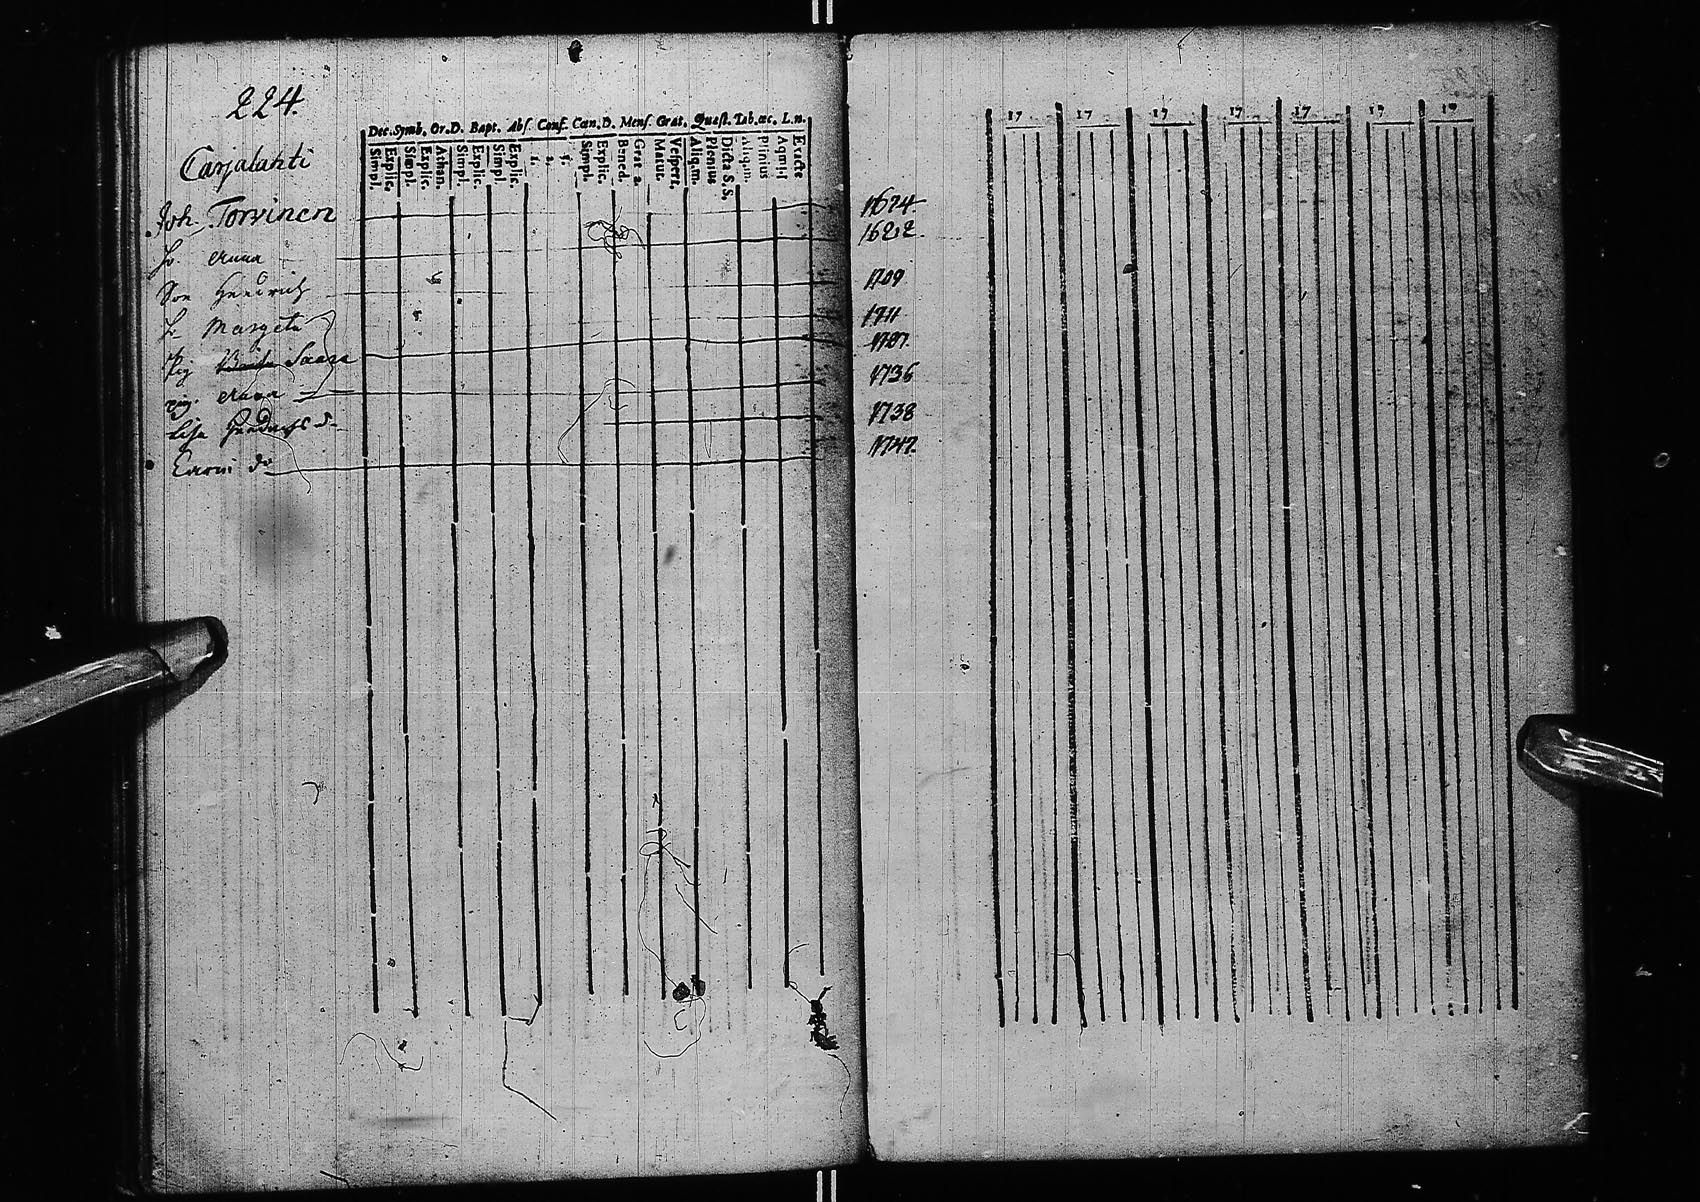 224.
Carjalahti
Dec. Symb. Or. D. Bapt. Abs. Conf. Cœn. D. Mens. Grat. Quæst. Tab. œc. L. n.
Simpl. Explic. Simpl. Explic. Athan. Simpl. Explic. Simpl. Explic. 1. 2. 3. Simpl. Explic. Bened. Grat. a. Matut. Vespert. Aliq. m. Plenius Dicta S. S. Aliqu. m. Plenius Exacte
Joh. Torvinen 1674
h. Anna 1622
Son Hendrich 1709
h. Margeta 1711
Pig Saara 1727
pig. Anna 1736
Lisa Hendrichs d. 1738
Carin do 1747.
17 17 17 17 17 17